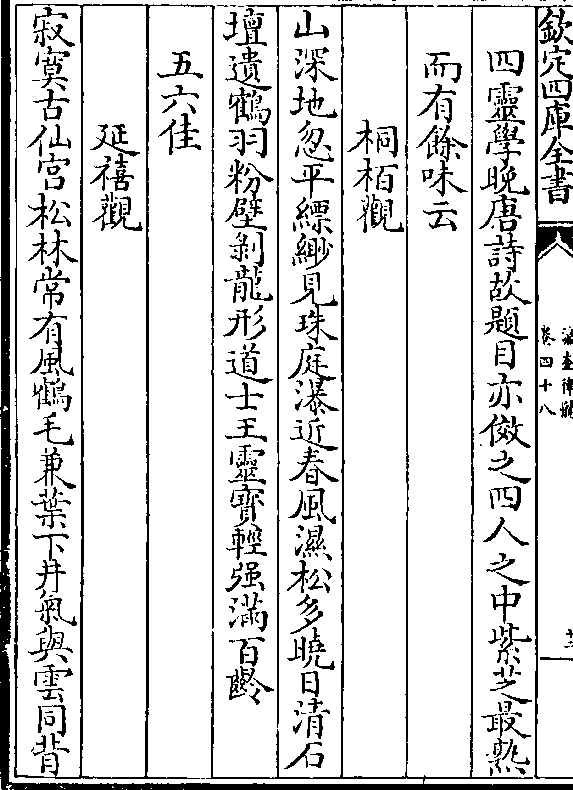 欽定四庫全書
瀛奎律髓
卷四十八
十三
四靈學晚唐詩故題目亦倣之四人之中紫芝最熟
而有餘味云
桐栢觀
山深地忽平縹緲見珠庭瀑近春風濕松多曉日清石
壇遺鶴羽粉壁剝龍形道士王靈寳輕强滿百齡
五六佳
延禧觀
寂寞古仙宫松林常有風鶴毛兼葉下井氣與雲同背